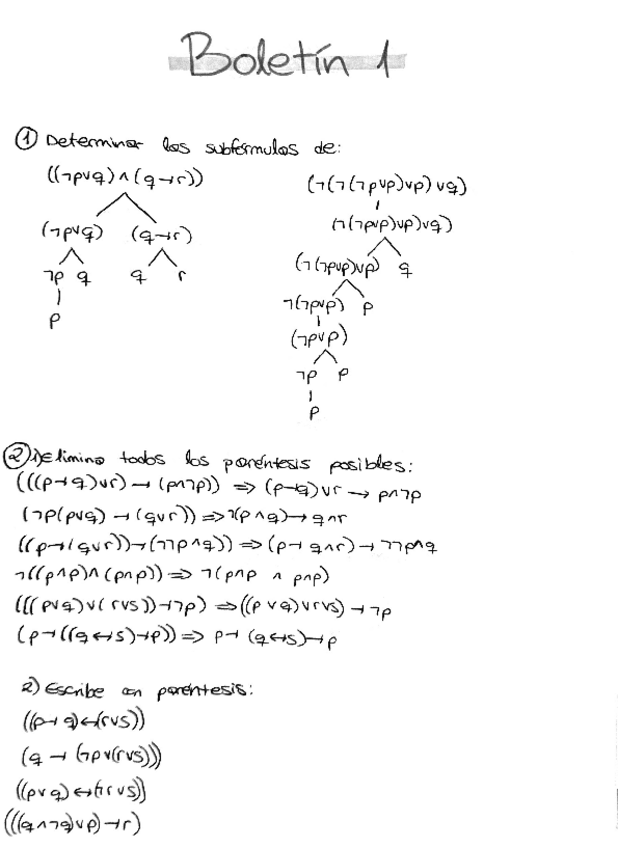 Boletín 1
① Determinar las subfórmulas de:
((¬p∨q)∧(q→r))
(¬p∨q) (q→r)
¬p q q r
p
(¬(¬(¬p∨p)∨p)∨q)
(¬(¬p∨p)∨p)∨q)
(¬(¬p∨p)∨p) q
¬(¬p∨p) p
(¬p∨p)
¬p p
p
② 1) Elimina todos los paréntesis posibles:
(((p→q)∨r)→(p∧¬p)) ⇒ (p→q)∨r → p∧¬p
(¬p(p∨q)→(q∨r)) ⇒ ¬(p∧q)→q∧r
((p→(q∨r))→(¬¬p∧q)) ⇒ (p→q∧r)→¬¬p∧q
¬((p∧p)∧(p∧p)) ⇒ ¬(p∧p ∧ p∧p)
(((p∨q)∨(r∨s))→¬p) ⇒ ((p∨q)∨r∨s)→¬p
(p→((q↔s)→p)) ⇒ p→(q↔s)→p
2) Escribe con paréntesis:
((p→q)↔(r∨s))
(q→(¬p∨(r∨s)))
((p∨q)↔(¬r∨s))
(((q∧¬q)∨p)→r)